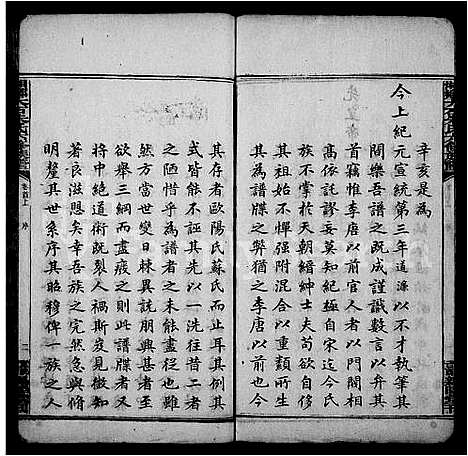 辛亥是為
今上紀元宣統第三年道源以不才執筆其
間樂吾譜之既成謹識數言以弁其
首竊惟李唐以前官人者以門閥相
高依託謬妄莫知紀極自宋迄今氏
族不掌於天朝縉紳士夫苟欲自侈
其為譜牒小則附混合以重類所生
其為譜牒之弊猶之李唐以前也今
其存者歐陽氏蘇氏而止耳其例其
式皆能不誣其先以一洗往昔二者
之陋惜乎為譜者之未能盡從也雖
然方當世變日棘異説朋興甚者乃
欲舉三綱而盡廢之則此譜牒者又
將中絕道術既裂人禍斯岌見微知
著良滋恩矣幸吾族之完然急而
明釐其世系序其昭穆俾一族之人
序